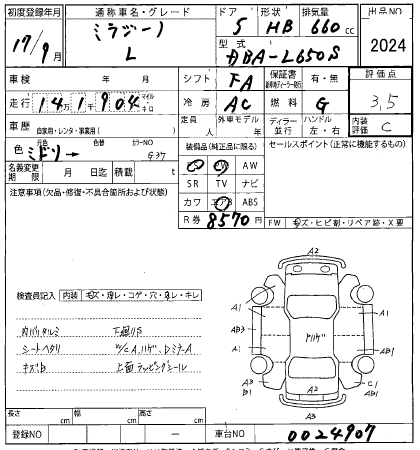 初度登録年月 通称車名・グレード ドア 形状 排気量 出品NO
17/9月 ミラジーノ L 5 HB 660 cc 2024
型式 DBA-L650S
車検 年 月 シフト FA 保証書 有・無 評価点
走行 14万1千904 マイル キロ 冷房 AC 燃料 G 3.5
車歴 自家用・レンタ・事業用( ) 定員 人 外車モデル 年 ディーラー 並行 ハンドル 左・右 内装評価 C
色 元色 ミドリ → 色替 カラーNO G37 装備品(純正品に限る) セールスポイント(正常に機能するもの)
名義変更期限 月 日迄 積載 AW
SR TV ナビ
注意事項(欠品・修復・不具合箇所および状態) カワ エアB ABS
R券 8570円 FW キズ・ヒビ割・リペア跡・X要
検査員記入 内装 キズ・汚レ・コゲ・穴・切レ・キレ
内バリタルミ 下廻リS
シートヘタリ
キズB 上面ラッピングシール
A2
A1 A1
AB3 A1
A1 AB3
A3 B1 C1 B1
A2
A3
長さ cm 幅 cm 高さ cm
登録NO ー 車台NO 0024907